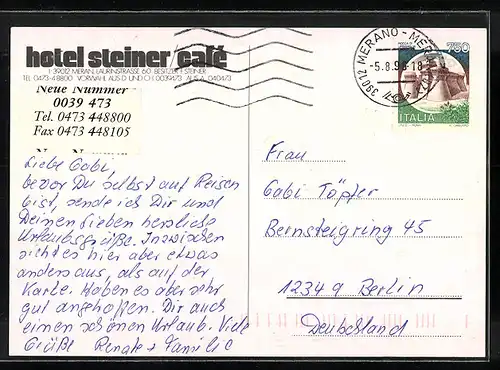 hotel steiner café
I-39012 MERAN, LAURINSTRASSE 60 BESITZER: F. STEINER
TEL. 0473-48800 VORWAHL AUS D UND CH 0039473 AUS A 040473
Neue Nummer
0039 473
Tel. 0473 448800
Fax 0473 448105
39012 MERANO - MERAN
-5.8.96-18
750
ITALIA
Liebe Gabi,
bevor Du selbst auf Reisen
bist, sende ich Dir und
Deinen Lieben herzliche
Urlaubsgrüße. Inzwischen
sieht es hier aber etwas
anders aus, als auf der
Karte. Haben es aber sehr
gut angetroffen. Dir auch
einen schönen Urlaub. Viele
Grüße Renate + Familie
Frau
Gabi Töpfer
Bernsteigring 45
12349 Berlin
Deutschland